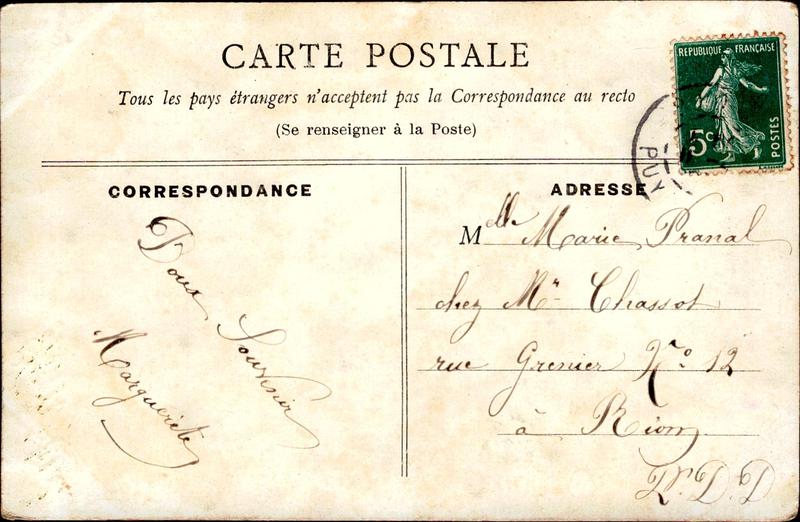 CARTE POSTALE
Tous les pays étrangers n'acceptent pas la Correspondance au recto
(Se renseigner à la Poste)
REPUBLIQUE FRANÇAISE
5c
POSTES
PUY
CORRESPONDANCE
Doux Souvenir
Marguerite
ADRESSE
Melle Marie Pranal
chez Mr Chassot
rue Grenier No 12
à Riom
P. D. D